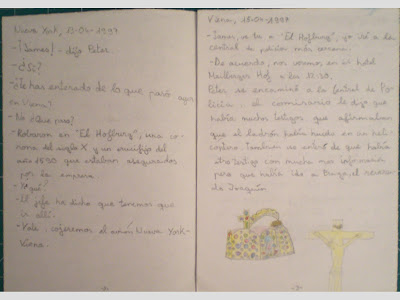 Nueva York, 13-04-1997
- ¡James! - dijo Peter.
- ¿Sí?
- ¿Te has enterado de lo que pasó ayer
en Viena?
- No ¿Qué pasó?
- Robaron en "El Hofburg", una co-
rona del siglo X y un crucifijo del
año 1930 que estaban asegurados
por la empresa.
- ¿Y qué?
- El jefe ha dicho que tenemos que
ir allí.
- Vale, cojeremos el avión Nueva York-
Viena.
Viena, 15-04-1997
- James, ve tu a "El Hofburg", yo iré a la
central de policía más cercana.
- De acuerdo, nos vemos en el hotel
Hof a las 12:30.
Peter se encaminó a la Central de Po-
licía. El comisario le dijo que
había muchos testigos que afirmaban
que el ladrón había huido en un heli-
cóptero. También se enteró de que había
otro testigo con mucha más información
pero que había ido a
de Joaquín.
-2-
-3-